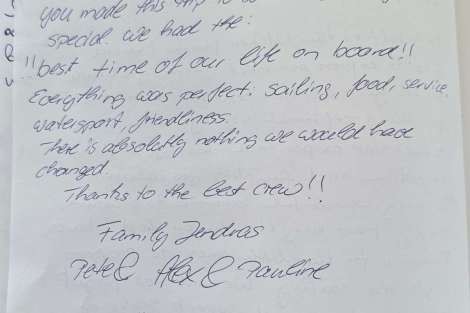 you made this trip
special. We had the:
!! best time of our life on board!!
Everything was perfect: sailing, food, service,
watersport, friendliness.
There is absolutly nothing we would have
changed.
Thanks to the best crew!!
Family Jendras
Pete & Alex & Pauline